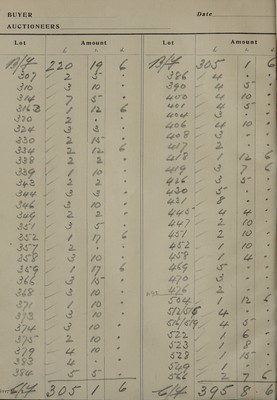 BUYER
Date
AUCTIONEERS
Lot Amount
£ s d
B/F 220 19 6
307 2 5 •
310 3 10 •
314 7 5 •
316 1 12 6
320 2 • •
324 3 3 •
330 2 15 •
334 2 12 6
338 2 2 •
339 1 10 •
343 2 2 •
344 3 3 •
346 3 10 •
349 2 2 •
351 3 5 •
352 1 17 6
357 2 • •
358 3 10 •
359 1 17 6
366 3 15 •
368 3 10 •
371 1 10 •
373 3 10 •
374 3 10 •
375 2 10 •
379 4 10 •
383 4 • •
384 5 5 •
C/F 305 1 6
Lot Amount
£ s d
B/F 305 1 6
386 4 • •
390 4 5 •
400 4 10 •
401 4 5 •
404 3 • •
406 4 10 •
408 3 • •
417 2 • •
418 1 12 6
419 3 7 6
426 3 5 •
430 5 • •
431 8 • •
445 4 4 •
447 2 10 •
451 2 10 •
452 1 10 •
458 1 4 •
469 5 • •
470 3 • •
476 2 • •
504 1 12 6
512/515 4 • •
516/519 4 5 •
522 1 6 •
523 1 8 •
528 1 15 •
549 1 • •
566 2 7 6
C/F 395 8 6